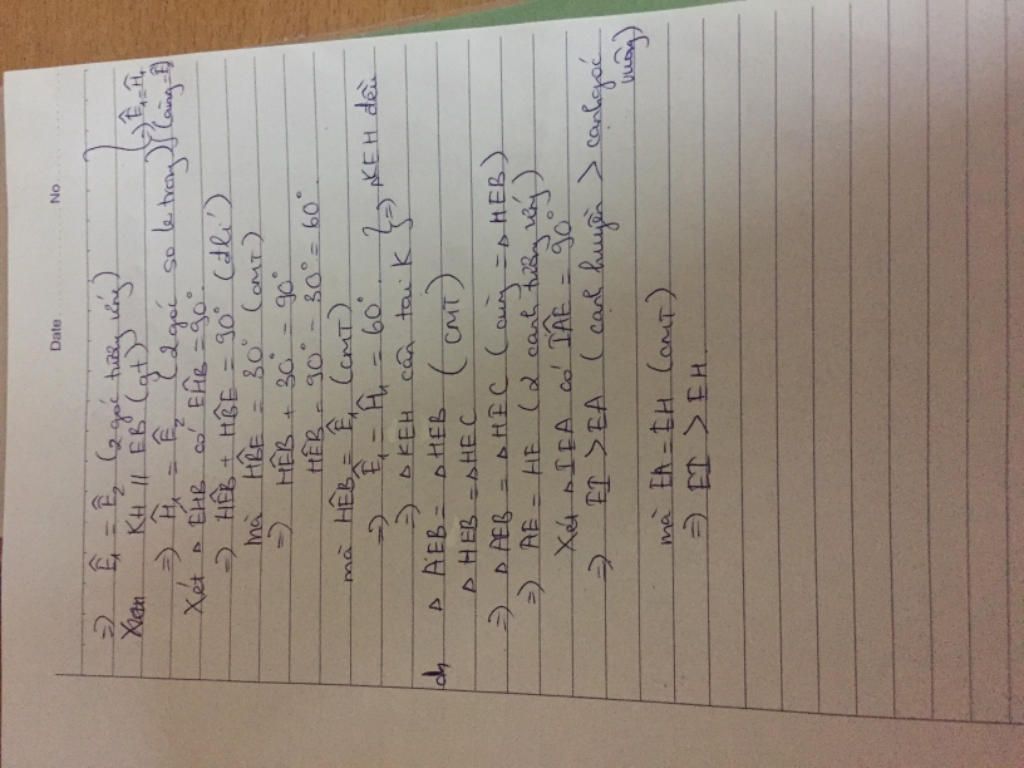 Date No
=> Ê₁ = Ê₂ (2 góc tương ứng)
KH // EB (gt)
=> Ĥ₁ = Ê₂ (2 góc so le trong) } => Ê₁ = Ĥ₁ (cùng = Ê₂)
Xét Δ EHB có EĤB = 90°
=> HÊB + HB̂E = 90° (đlí)
mà HB̂E = 30° (cmt)
=> HÊB + 30° = 90°
HÊB = 90° - 30° = 60°
mà HÊB = Ê₁ (cmt)
=> Ê₁ = Ĥ₁ = 60°
=> Δ KEH cân tại K } => Δ KEH đều
d, Δ AEB = Δ HEB
Δ HEB = Δ HEC (cmt)
=> Δ AEB = Δ HEC (cùng = Δ HEB)
=> AE = HE (2 cạnh tương ứng)
Xét Δ IEA có IÂE = 90°
=> EI > EA (cạnh huyền > cạnh góc vuông)
mà EA = EH (cmt)
=> EI > EH